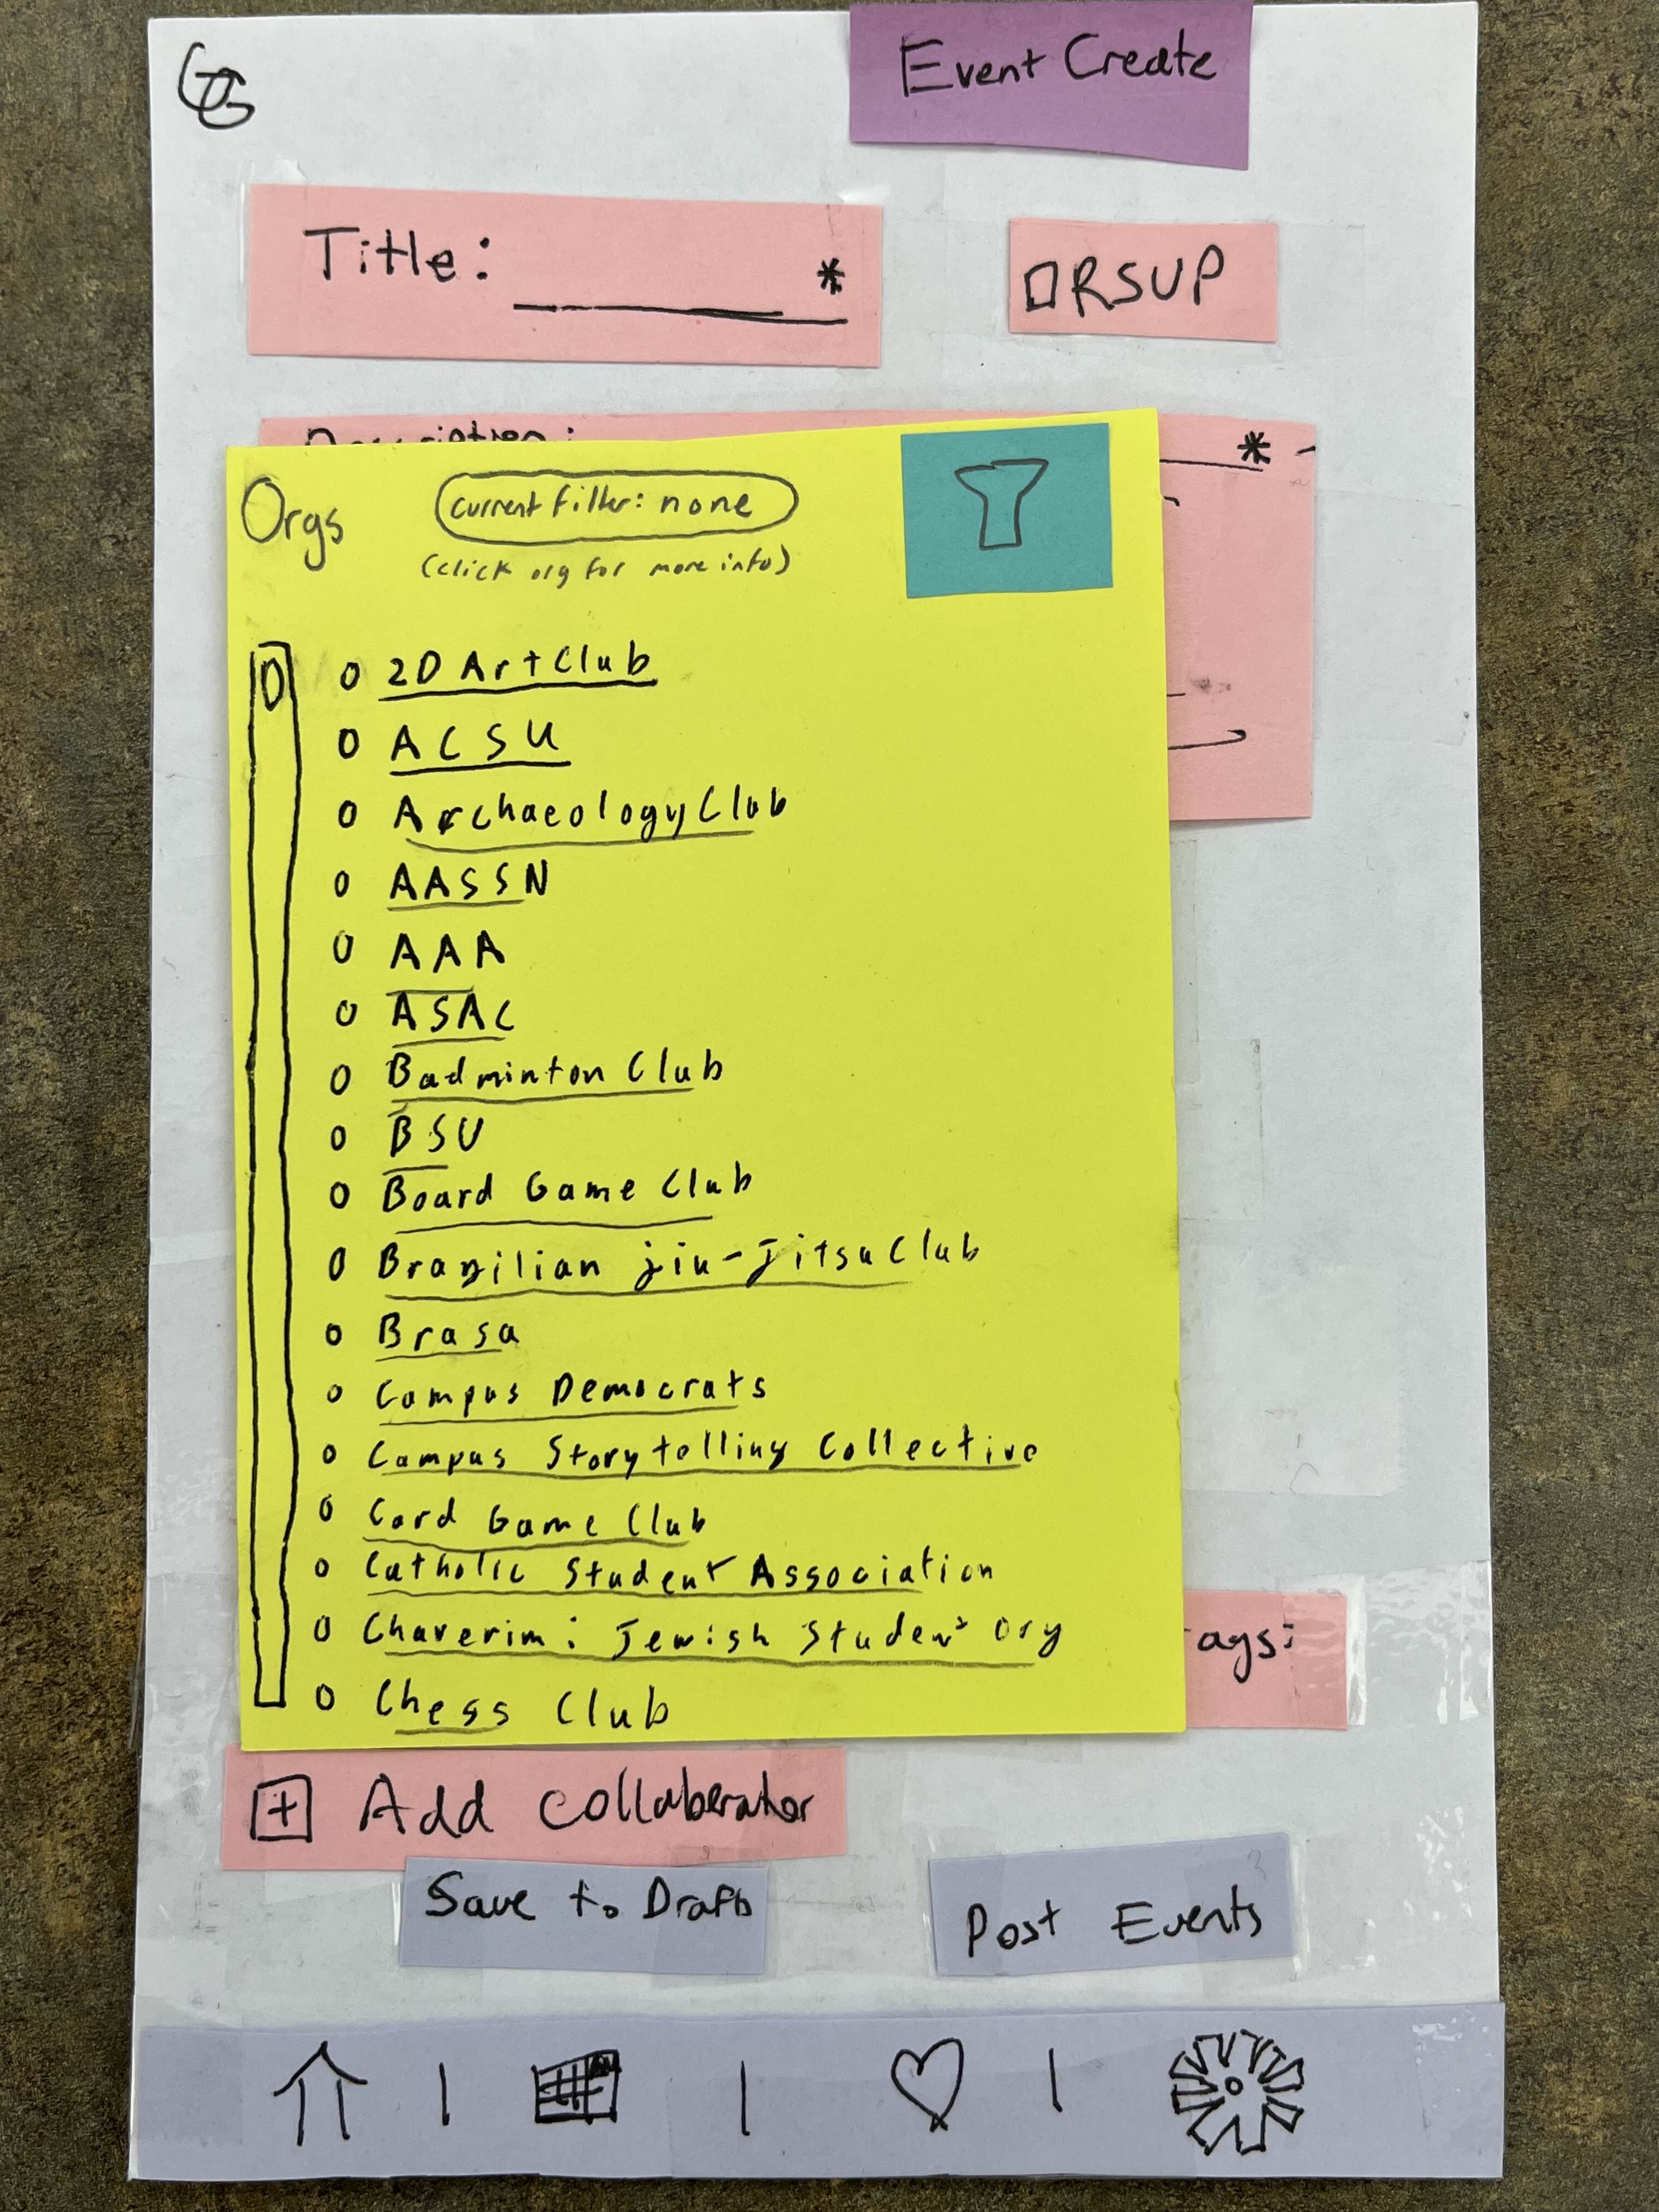 Event Create
Title: *
RSVP
Description: *
Orgs
Current filter: none
(click org for more info)
2D Art Club
ACSU
Archaeology Club
AASSN
AAA
ASAC
Badminton Club
BSU
Board Game Club
Brazilian jiu-Jitsu Club
Brasa
Campus Democrats
Campus Storytelling Collective
Card Game Club
Catholic Student Association
Chaverim: Jewish Student Org
Chess Club
ags:
+ Add collaberator
Save to Drafts
Post Events